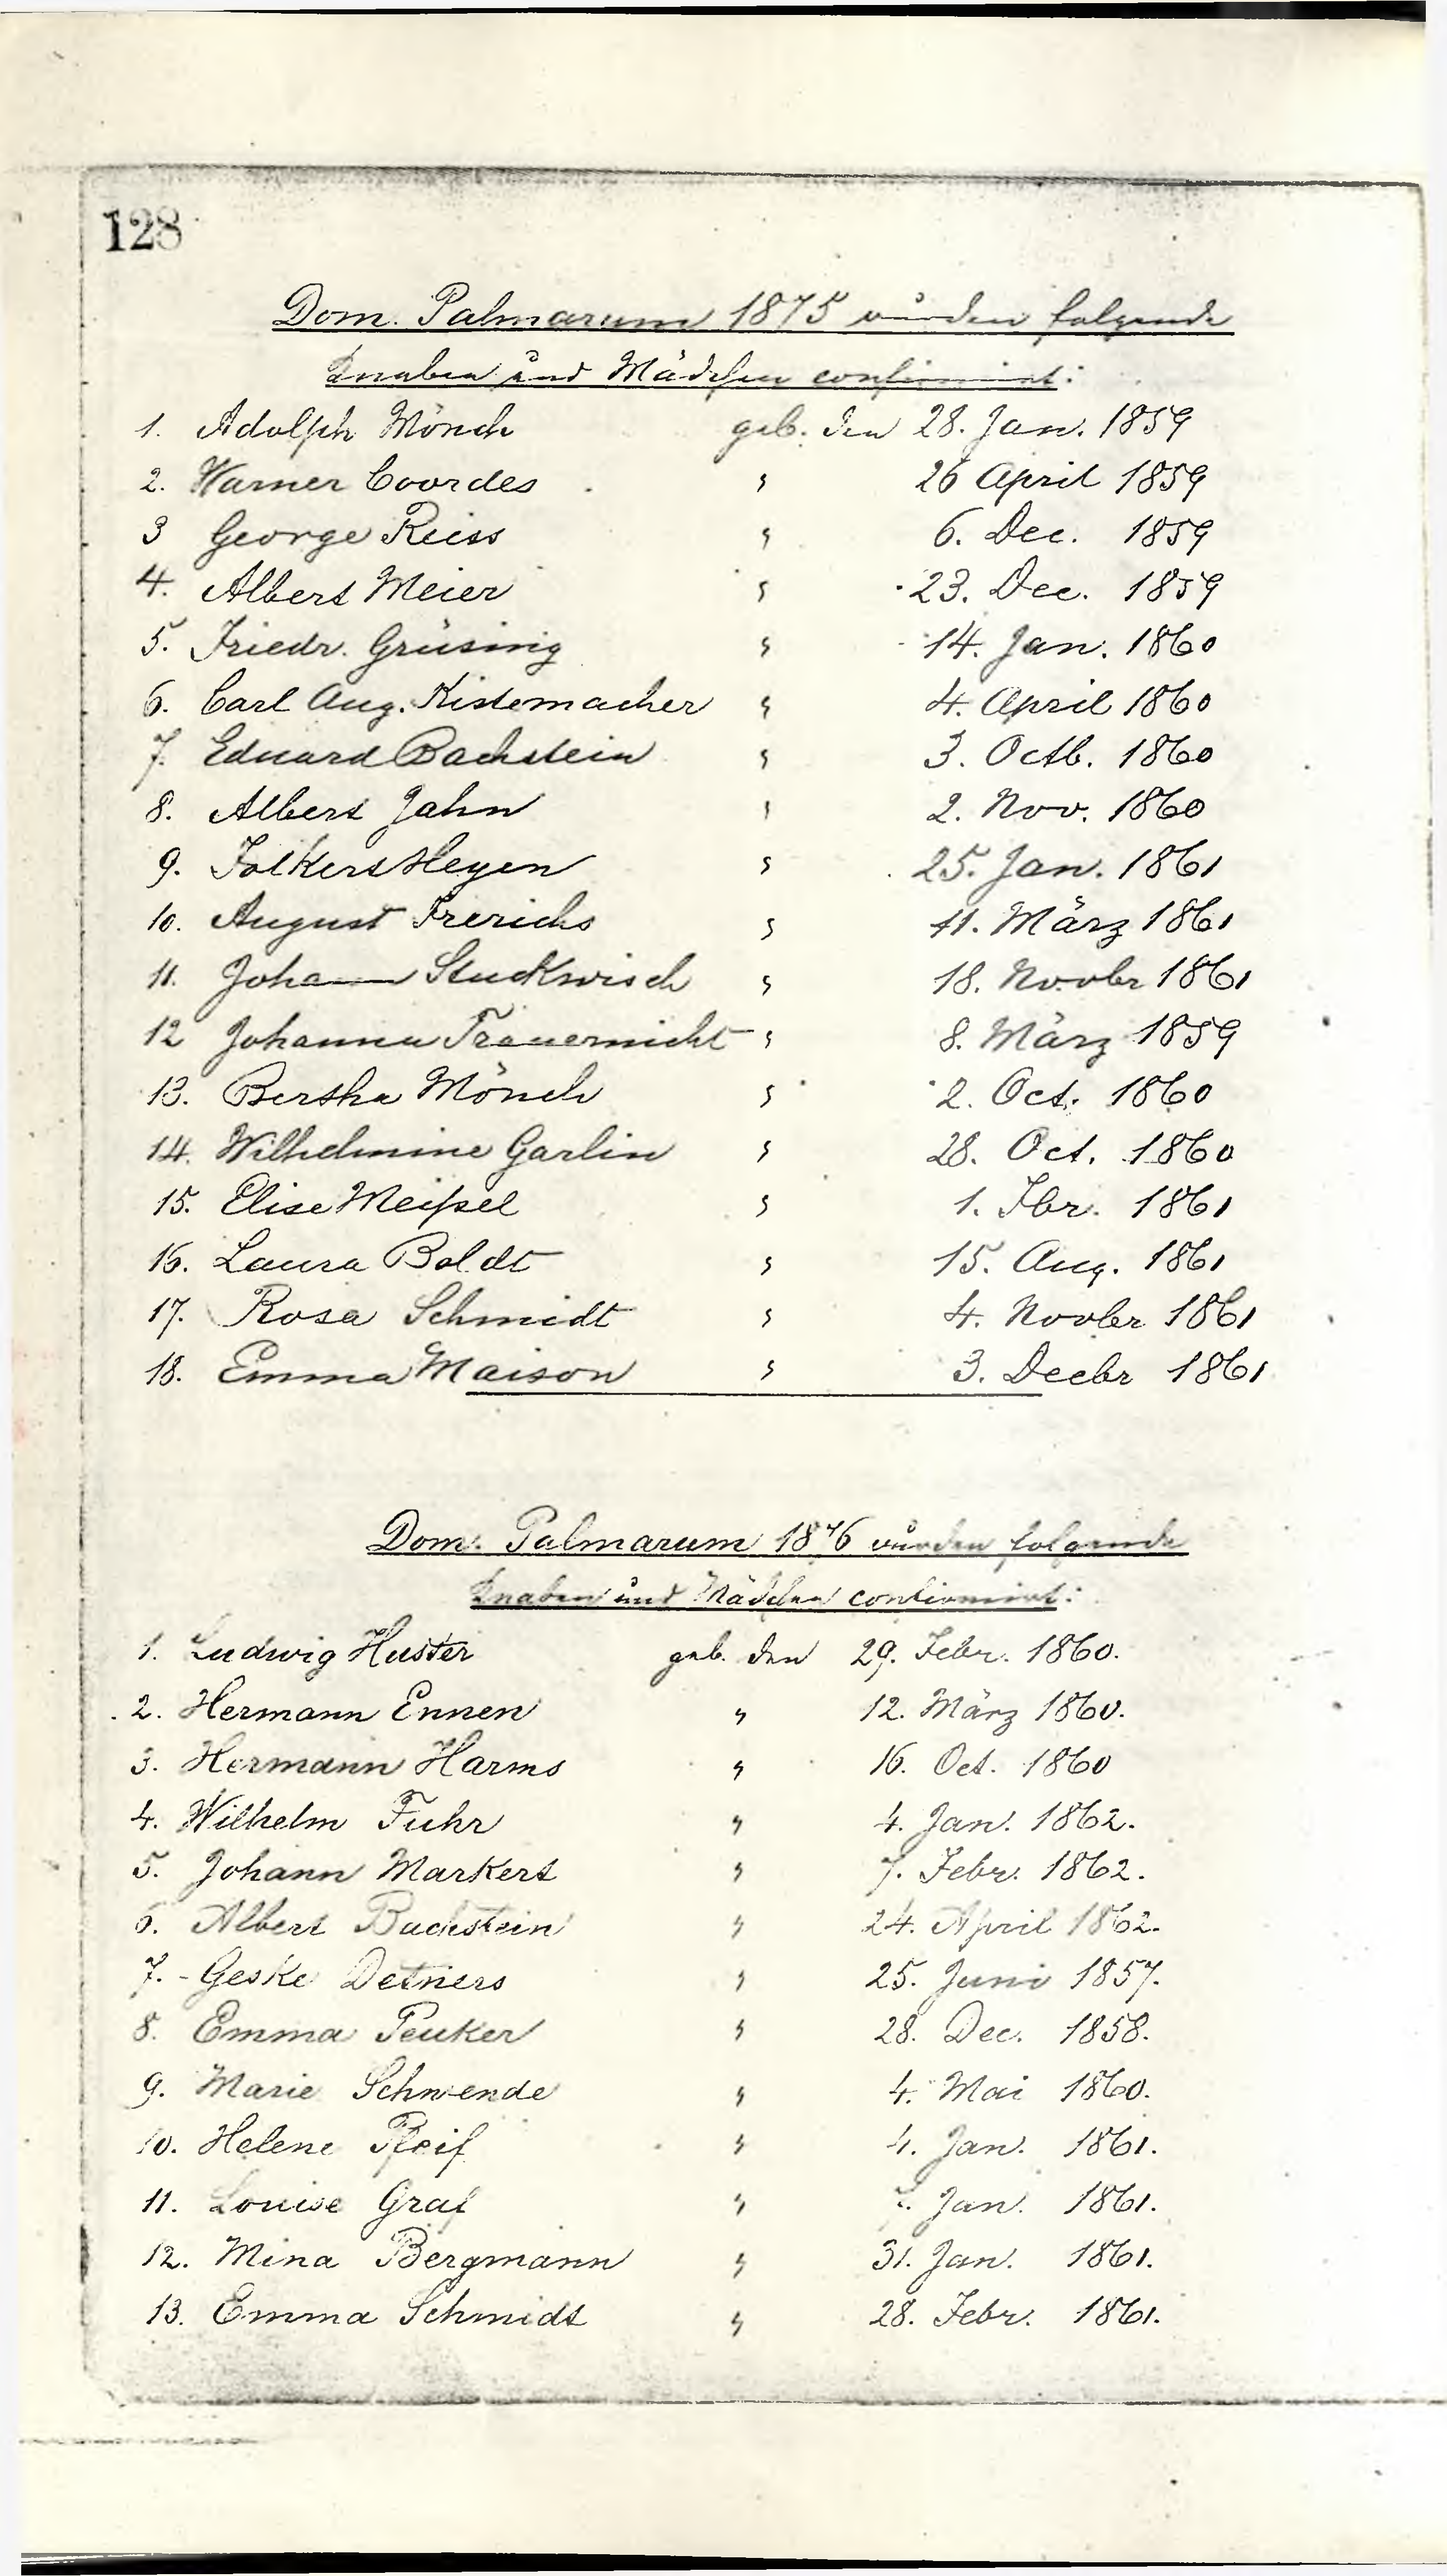 128
Dom. Palmarum 1875 wurden folgende
Knaben und Mädchen confirmirt:
1. Adolph Mönch geb. den 28. Jan. 1859
2. Warner Coordes " 26 April 1859
3 George Reiss " 6. Dec. 1859
4. Albert Meier " 23. Dec. 1859
5. Friedr. Grüsing " 14. Jan. 1860
6. Carl Aug. Kistemacher " 4. April 1860
7. Eduard Bachstein " 3. Octb. 1860
8. Albert Jahn " 2. Nov. 1860
9. Folkert Heyen " 25. Jan. 1861
10. August Frerichs " 11. März 1861
11. Johann Stuckwisch " 18. Novbr 1861
12 Johanna Trauernicht " 8. März 1859
13. Bertha Mönch " 2. Oct. 1860
14. Wilhelmine Garlin " 28. Oct. 1860
15. Elise Meißel " 1. Fbr. 1861
16. Laura Boldt " 15. Aug. 1861
17. Rosa Schmidt " 4. Novbr 1861
18. Emma Maison " 3. Decbr 1861
Dom. Palmarum 1876 wurden folgende
Knaben und Mädchen confirmirt:
1. Ludwig Huster geb. den 29. Febr. 1860.
2. Hermann Ennen " 12. März 1860.
3. Hermann Harms " 16. Oct. 1860
4. Wilhelm Fuhr " 4. Jan. 1862.
5. Johann Markert " 7. Febr. 1862.
6. Albert Bachstein " 24. April 1862.
7. Geske Detmers " 25. Juni 1857.
8. Emma Peuker " 28. Dec. 1858.
9. Marie Schwende " 4. Mai 1860.
10. Helene Pfeif " 4. Jan. 1861.
11. Louise Graf " 7. Jan. 1861.
12. Mina Bergmann " 31. Jan. 1861.
13. Emma Schmidt " 28. Febr. 1861.